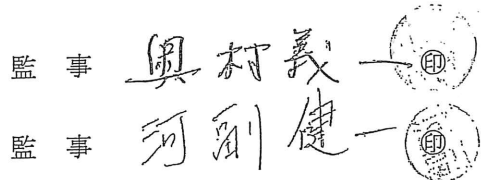 監事 奥村義一 ㊞
監事 河副健一 ㊞